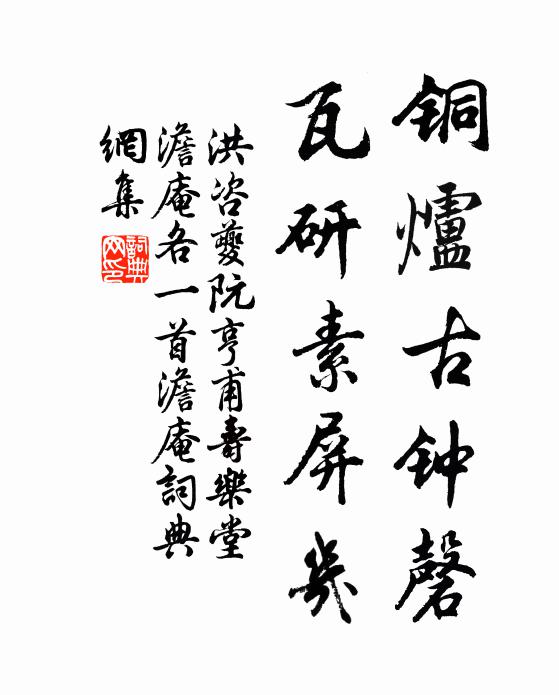 銅爐古钟磬
瓦研素屏幾
洪咨夔阮亨甫壽樂堂
澹庵各一首澹庵詞典
網集
詞典
网印